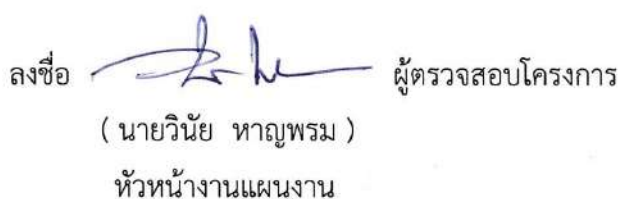 ลงชื่อ ผู้ตรวจสอบโครงการ
( นายวินัย หาญพรม )
หัวหน้างานแผนงาน